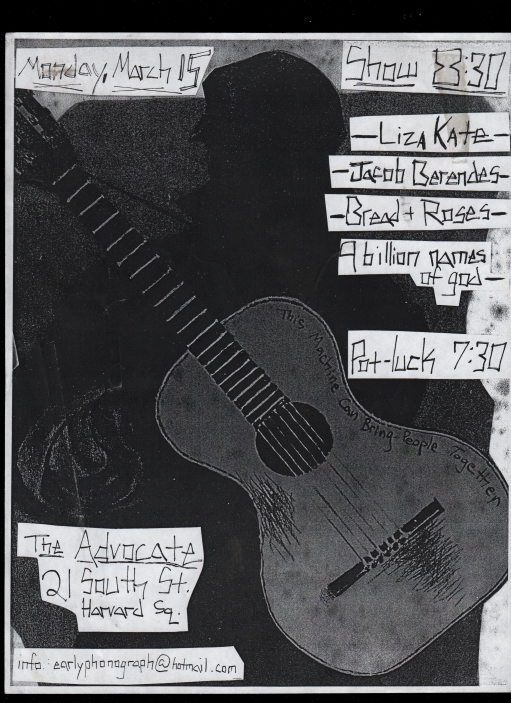 Monday, March 15
Show 8:30
-Liza Kate-
-Jacob Berendes-
-Bread + Roses-
9 billion names
of god-
Pot-luck 7:30
This Machine Can Bring People Together
The Advocate
21 South St.
Harvard Sq.
info: earlyphonograph@hotmail.com